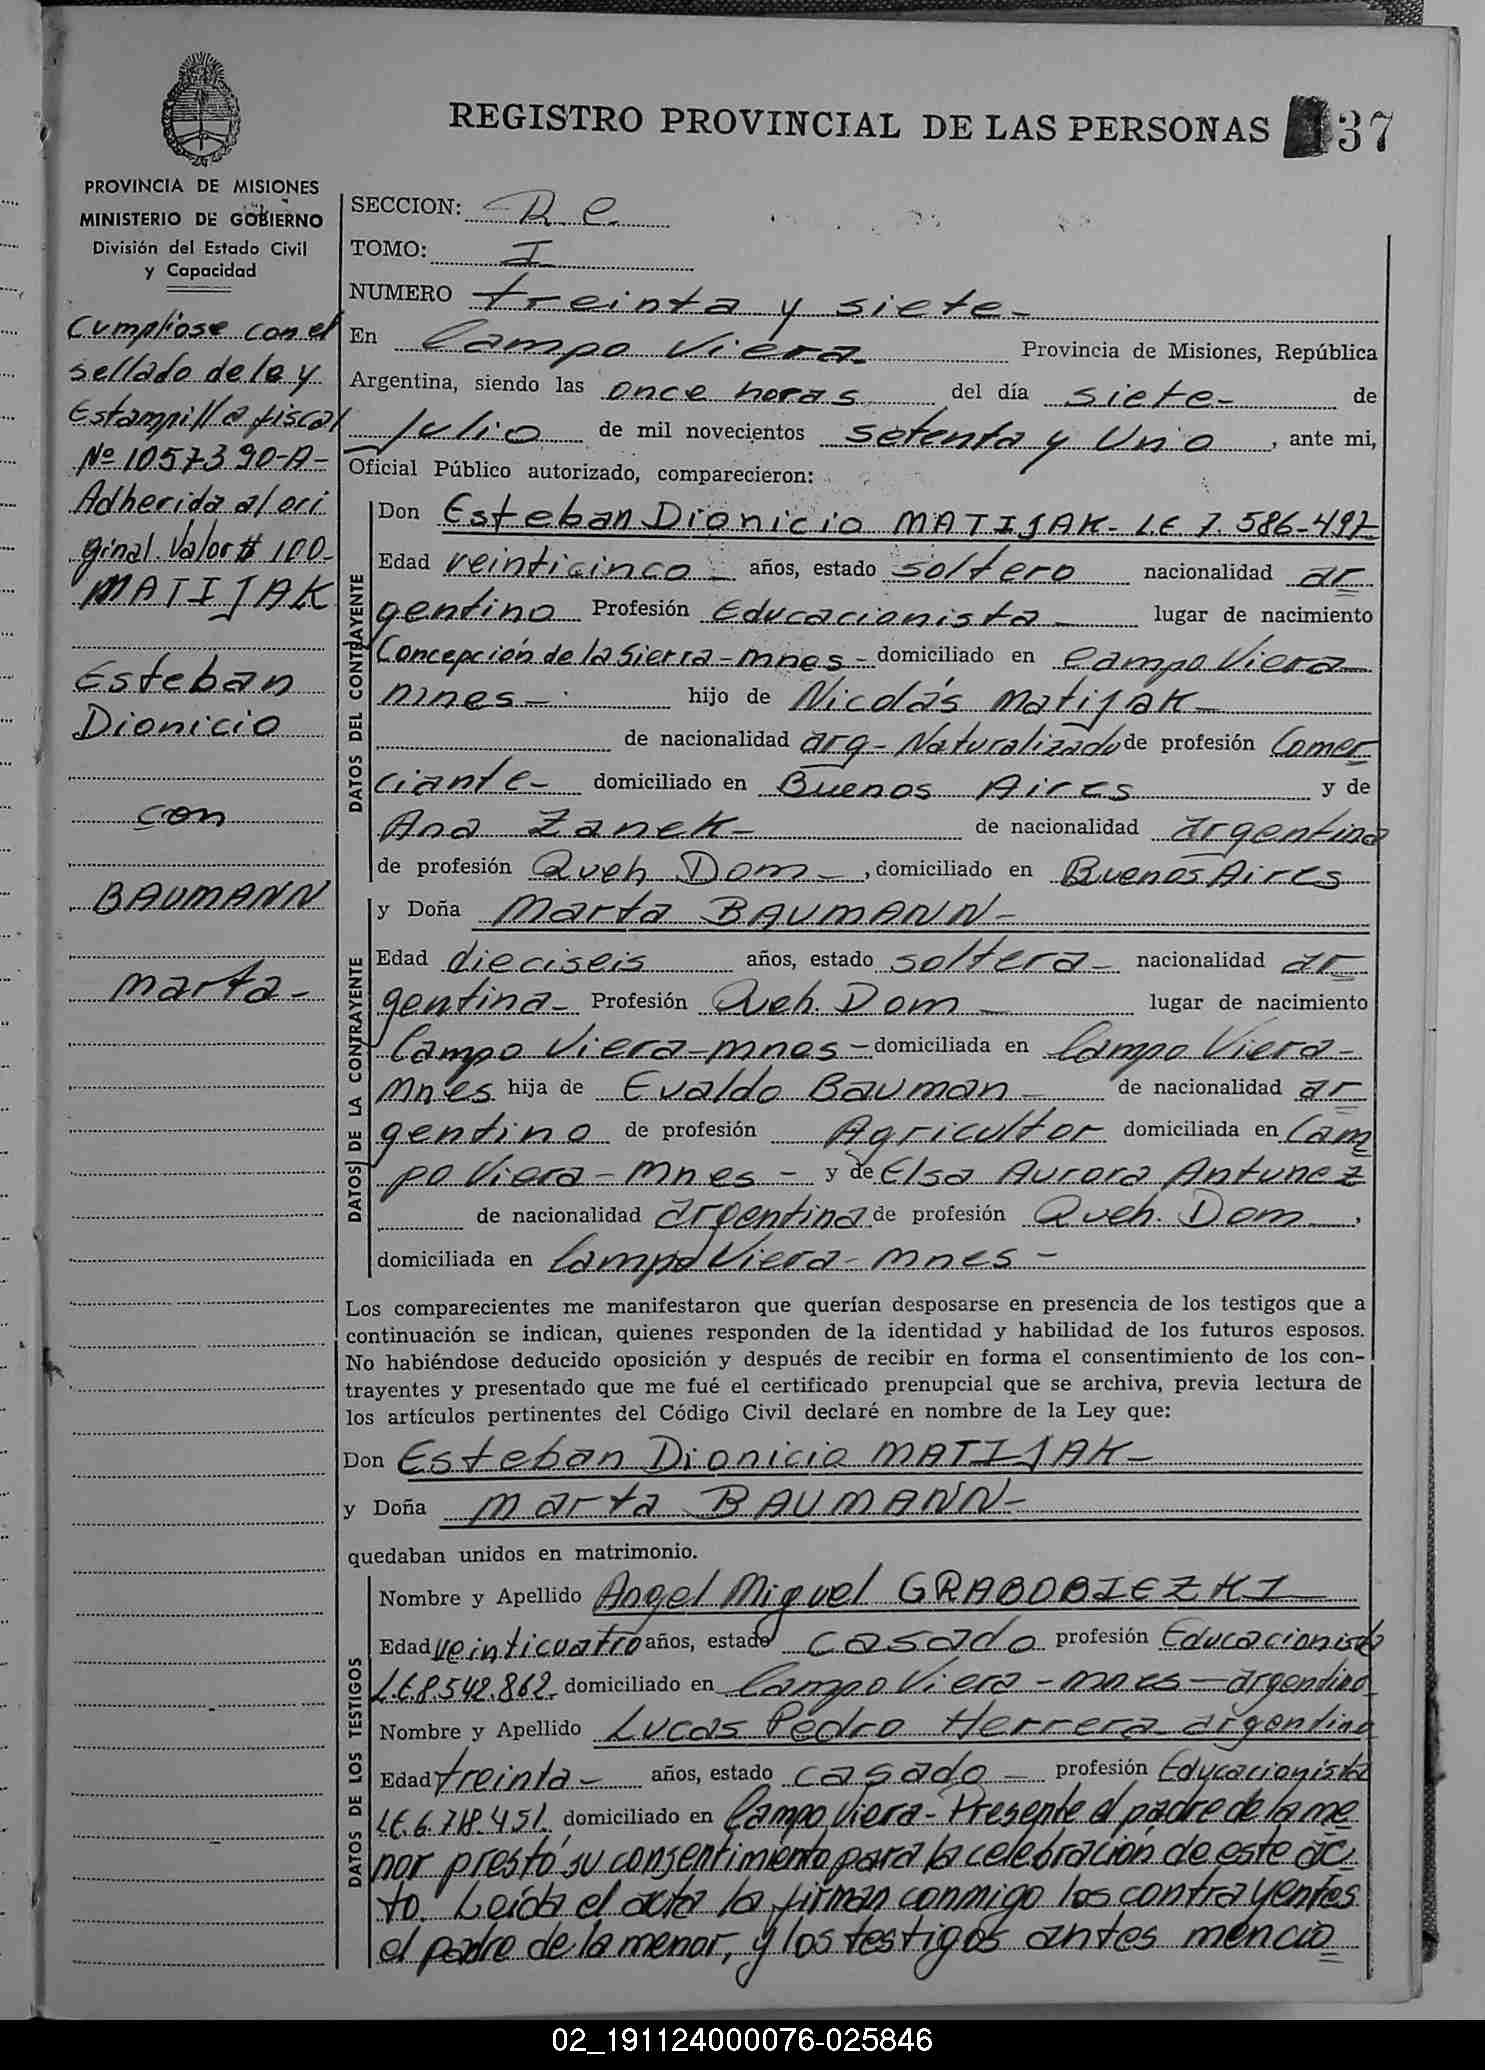 REGISTRO PROVINCIAL DE LAS PERSONAS 37
PROVINCIA DE MISIONES
MINISTERIO DE GOBIERNO
División del Estado Civil
y Capacidad
Cumplióse con el
sellado de le y
Estampilla fiscal
Nº 1057390-A-
Adherida al ori
ginal. Valor $ 100-
MATIJAK
Esteban
Dionicio
con
BAUMANN
Marta-
SECCION: R C.
TOMO: I
NUMERO treinta y siete-
En Campo Viera Provincia de Misiones, República
Argentina, siendo las once horas del día siete- de
Julio de mil novecientos setenta y Uno, ante mi,
Oficial Público autorizado, comparecieron:
DATOS DEL CONTRAYENTE
Don Esteban Dionicio MATIJAK- L.E 7.586-497
Edad veinticinco- años, estado soltero nacionalidad ar
gentino Profesión Educacionista- lugar de nacimiento
Concepción de la Sierra-Mnes- domiciliado en Campo Viera
Mnes- hijo de Nicolás Matijak-
de nacionalidad arg- Naturalizado de profesión Comer
ciante- domiciliado en Buenos Aires y de
Ana Zanek- de nacionalidad argentina
de profesión Queh. Dom-, domiciliado en Buenos Aires
DATOS DE LA CONTRAYENTE
y Doña Marta BAUMANN-
Edad dieciseis años, estado soltera- nacionalidad ar
gentina- Profesión Queh. Dom- lugar de nacimiento
Campo Viera-Mnes- domiciliada en Campo Viera-
Mnes hija de Evaldo Bauman- de nacionalidad ar
gentino de profesión Agricultor domiciliada en Cam
po Viera-Mnes- y de Elsa Aurora Antunez
de nacionalidad argentina de profesión Queh. Dom,
domiciliada en Campo Viera-Mnes-
Los comparecientes me manifestaron que querían desposarse en presencia de los testigos que a
continuación se indican, quienes responden de la identidad y habilidad de los futuros esposos.
No habiéndose deducido oposición y después de recibir en forma el consentimiento de los con-
trayentes y presentado que me fué el certificado prenupcial que se archiva, previa lectura de
los artículos pertinentes del Código Civil declaré en nombre de la Ley que:
Don Esteban Dionicio MATIJAK-
y Doña Marta BAUMANN-
quedaban unidos en matrimonio.
DATOS DE LOS TESTIGOS
Nombre y Apellido Angel Miguel GRABOBIEZKI
Edad veinticuatro años, estado casado profesión Educacionista
L.E 8.542.862. domiciliado en Campo Viera-Mnes-argentino
Nombre y Apellido Lucas Pedro Herrera argentino
Edad treinta- años, estado casado- profesión Educacionista
L.E. 6.718.451. domiciliado en Campo Viera- Presente el padre de la me
nor prestó su consentimiento para la celebración de este ac
to. Leída el acta la firman conmigo los contrayentes
el padre de la menor, y los testigos antes mencio
02_191124000076-025846